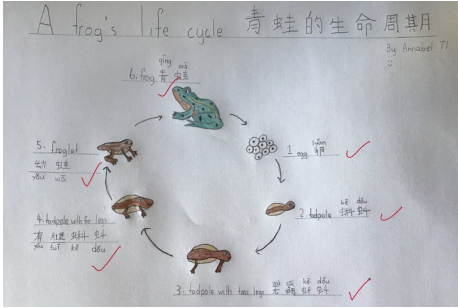 A frog's life cycle 青蛙的生命周期
By Annabel T1
qīng wā
6. frog 青蛙
luǎn
1. egg 卵
kē dǒu
2. tadpole 蝌蚪
kē dǒu
3. tadpole with two legs 蝌蚪
4. tadpole with four legs
有 腿 蝌蚪
yǒu tuǐ kē dǒu
5. froglet
幼 蛙
yòu wā